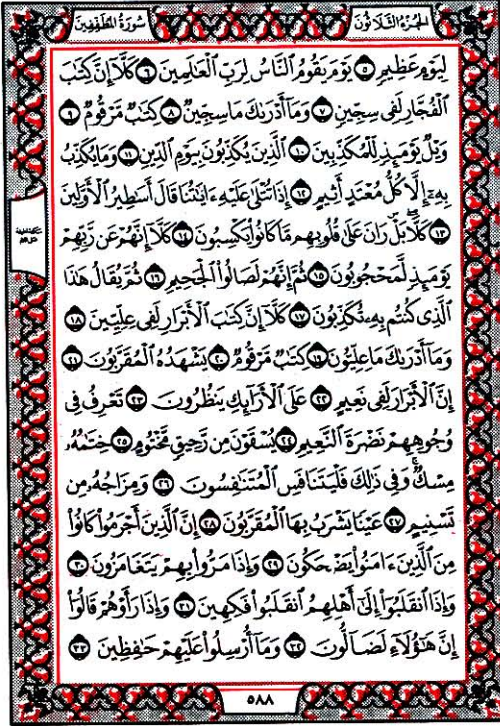 الجزء الثلاثون
سورة المطففين
لِيَوْمٍ عَظِيمٍ ٥ يَوْمَ يَقُومُ النَّاسُ لِرَبِّ الْعَالَمِينَ ٦ كَلَّا إِنَّ كِتَابَ
الْفُجَّارِ لَفِي سِجِّينٍ ٧ وَمَا أَدْرَاكَ مَا سِجِّينٌ ٨ كِتَابٌ مَّرْقُومٌ ٩
وَيْلٌ يَوْمَئِذٍ لِّلْمُكَذِّبِينَ ١٠ الَّذِينَ يُكَذِّبُونَ بِيَوْمِ الدِّينِ ١١ وَمَا يُكَذِّبُ
بِهِ إِلَّا كُلُّ مُعْتَدٍ أَثِيمٍ ١٢ إِذَا تُتْلَىٰ عَلَيْهِ ءَايَاتُنَا قَالَ أَسَاطِيرُ الْأَوَّلِينَ
١٣ كَلَّا بَلْ رَانَ عَلَىٰ قُلُوبِهِم مَّا كَانُوا يَكْسِبُونَ ١٤ كَلَّا إِنَّهُمْ عَن رَّبِّهِمْ
يَوْمَئِذٍ لَّمَحْجُوبُونَ ١٥ ثُمَّ إِنَّهُمْ لَصَالُوا الْجَحِيمِ ١٦ ثُمَّ يُقَالُ هَٰذَا
الَّذِي كُنتُم بِهِ تُكَذِّبُونَ ١٧ كَلَّا إِنَّ كِتَابَ الْأَبْرَارِ لَفِي عِلِّيِّينَ ١٨
وَمَا أَدْرَاكَ مَا عِلِّيُّونَ ١٩ كِتَابٌ مَّرْقُومٌ ٢٠ يَشْهَدُهُ الْمُقَرَّبُونَ ٢١
إِنَّ الْأَبْرَارَ لَفِي نَعِيمٍ ٢٢ عَلَى الْأَرَائِكِ يَنظُرُونَ ٢٣ تَعْرِفُ فِي
وُجُوهِهِمْ نَضْرَةَ النَّعِيمِ ٢٤ يُسْقَوْنَ مِن رَّحِيقٍ مَّخْتُومٍ ٢٥ خِتَامُهُ
مِسْكٌ ۚ وَفِي ذَٰلِكَ فَلْيَتَنَافَسِ الْمُتَنَافِسُونَ ٢٦ وَمِزَاجُهُ مِن
تَسْنِيمٍ ٢٧ عَيْنًا يَشْرَبُ بِهَا الْمُقَرَّبُونَ ٢٨ إِنَّ الَّذِينَ أَجْرَمُوا كَانُوا
مِنَ الَّذِينَ ءَامَنُوا يَضْحَكُونَ ٢٩ وَإِذَا مَرُّوا بِهِمْ يَتَغَامَزُونَ ٣٠
وَإِذَا انقَلَبُوا إِلَىٰ أَهْلِهِمُ انقَلَبُوا فَكِهِينَ ٣١ وَإِذَا رَأَوْهُمْ قَالُوا
إِنَّ هَٰؤُلَاءِ لَضَالُّونَ ٣٢ وَمَا أُرْسِلُوا عَلَيْهِمْ حَافِظِينَ ٣٣
٥٨٨